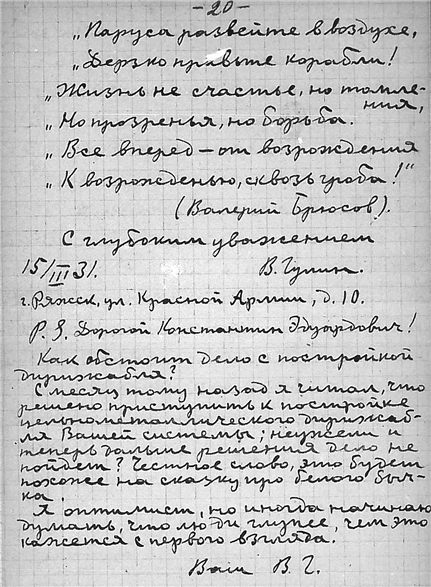 - 20 -
„Паруса развейте в воздухе,
„Дерзко правьте корабли!
„Жизнь не счастье, но томле-
ния,
„Но прозренья, но борьба.
„Все вперед – от возрождения
„К возрожденью, сквозь гроба!"
(Валерий Брюсов).
С глубоким уважением
15/III 31.    В. Гулин.
г. Ряжск, ул. Красной Армии, д. 10.
P. S. Дорогой Константин Эдуардович!
Как обстоит дело с постройкой
дирижабля?
С месяц тому назад я читал, что
решено приступить к постройке
цельнометаллического дирижаб-
ля Вашей системы; неужели и
теперь дальше решения дело не
пойдет? Честное слово, это будет
похоже на сказку про белого быч-
ка.
Я оптимист, но иногда начинаю
думать, что люди глупее, чем это
кажется с первого взгляда.
Ваш В. Г.